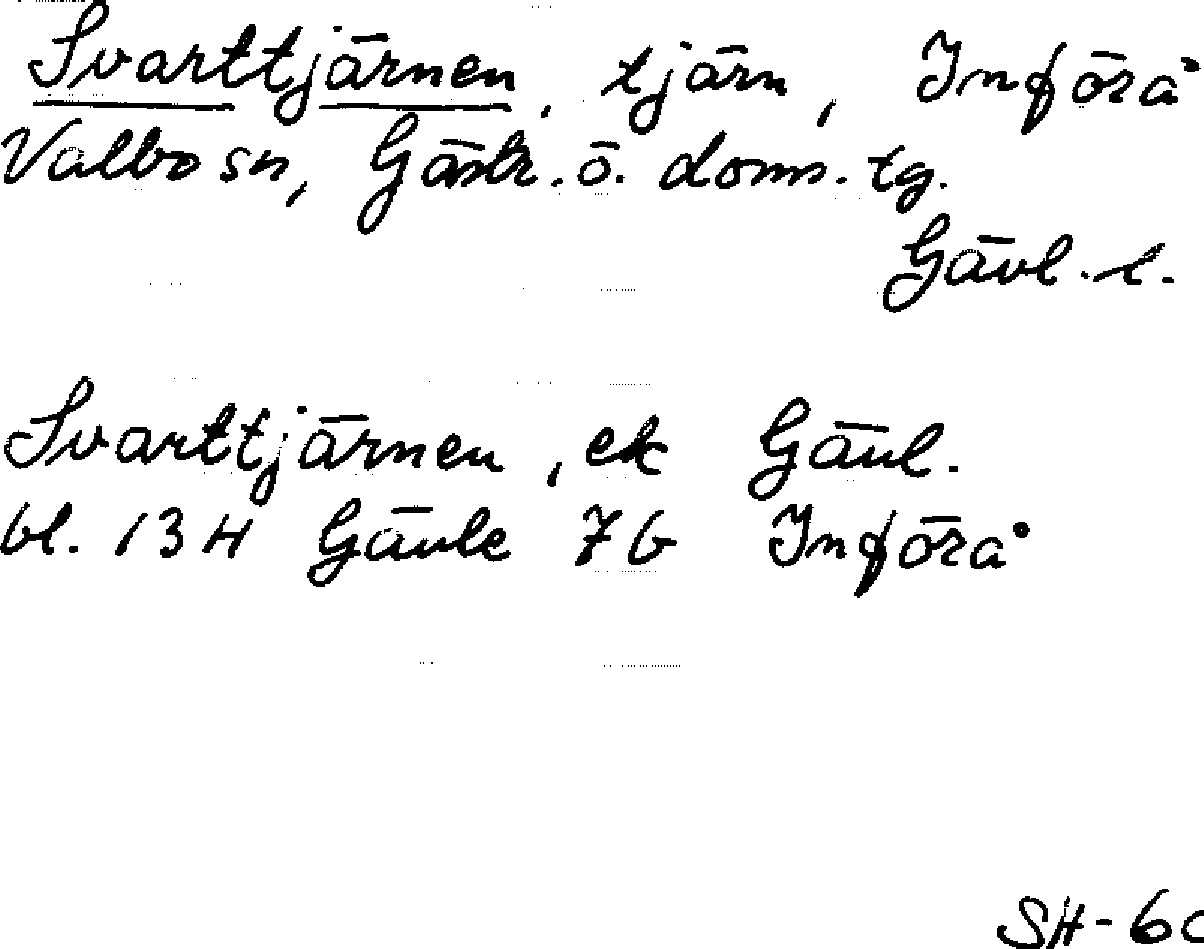 Svarttjärnen, tjärn, Införå
Valbo sn, Gästr. ö. doms. tg.
Gävl. l.
Svarttjärnen, ek Gävl.
bl. 13H Gävle 7b Införå
SH-60